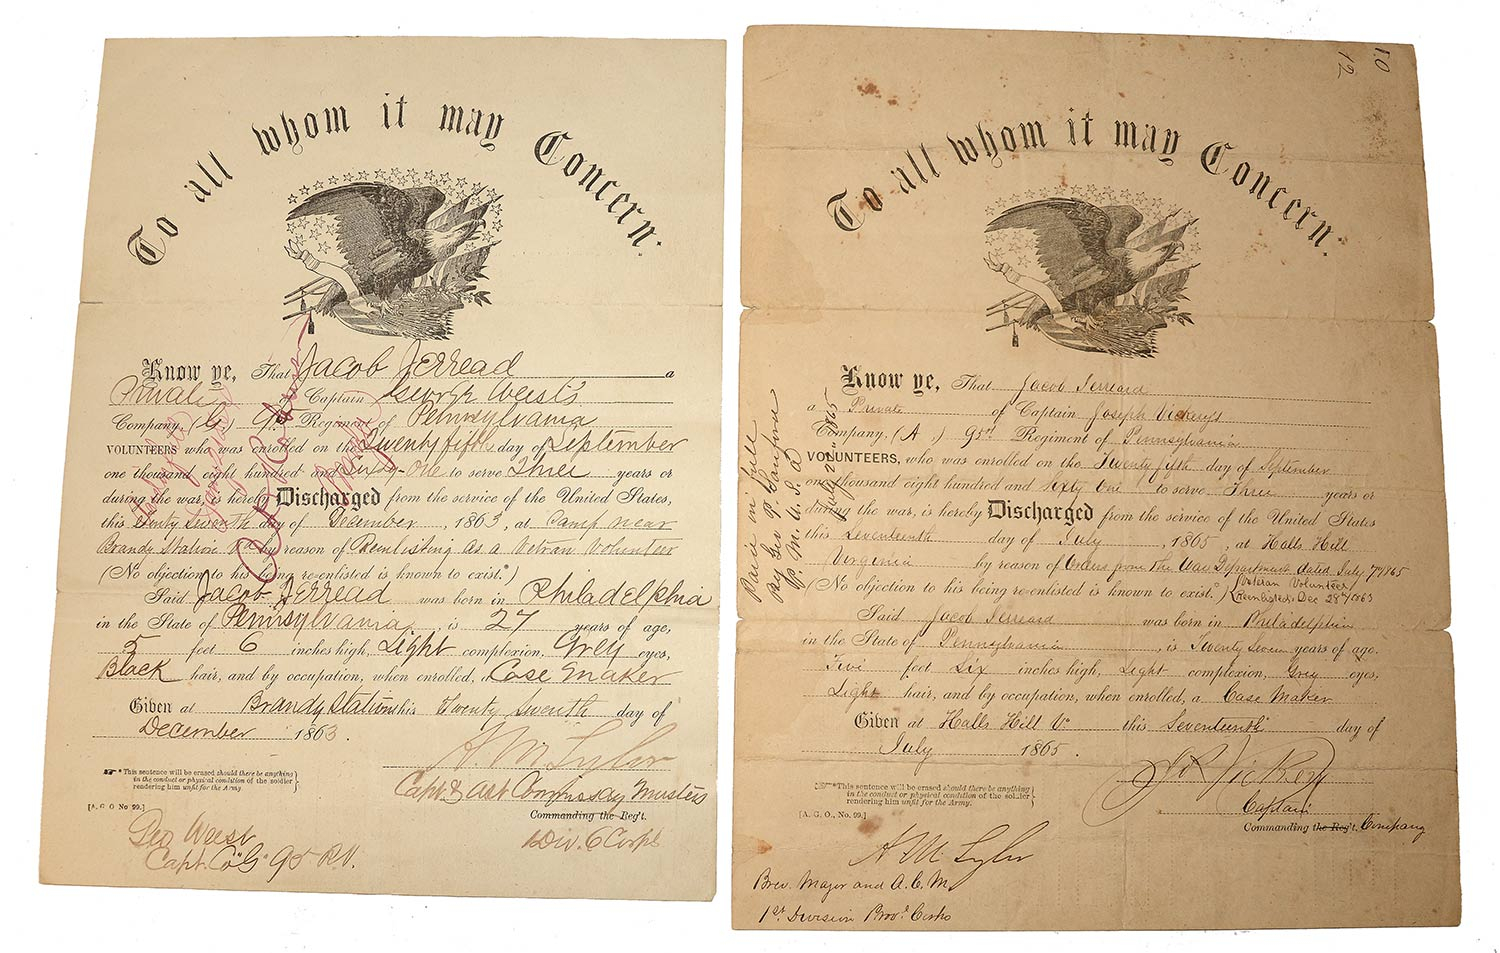 To all whom it may Concern.
Know ye, That Jacob Jerread a
Private Captain George Weest's
Company, G 95th Regiment of Pennsylvania
VOLUNTEERS who was enrolled on the Twenty fifth day of September
one thousand eight hundred and Sixty-One to serve Three years or
during the war, is hereby Discharged from the service of the United States,
this Twenty Seventh day of December, 1863, at Camp near
Brandy Station Va by reason of Reinlisting as a Vetran Volunteer
(No objection to his being re-enlisted is known to exist.*)
Said Jacob Jerread was born in Philadelphia
in the State of Pennsylvania, is 27 years of age,
5 feet 6 inches high, Light complexion, Grey eyes,
Black hair, and by occupation, when enrolled, a Case Maker
Given at Brandy Station this Twenty Seventh day of
December 1863.
A M Tyler
Capt & ast Commissay Musters
Commanding the Reg't.
1 Div. 6 Corps
☞*This sentence will be erased should there be anything
in the conduct or physical condition of the soldier
rendering him unfit for the Army.
[A. G. O. No. 99.]
Geo Weest
Capt. Co "G" 95 P.V.
10
12
To all whom it may Concern.
Know ye, That Jacob Jerreard
a Private of Captain Joseph Vickerys
Company, (A,) 95th Regiment of Pennsylvania
VOLUNTEERS, who was enrolled on the Twenty fifth day of September
one thousand eight hundred and Sixty One to serve Three years or
during the war, is hereby Discharged from the service of the United States
this Seventeenth day of July, 1865, at Halls Hill
Virginia by reason of Orders from the War Department dated July 7th 1865
(No objection to his being re-enlisted is known to exist.*) Veteran Volunteer
Reenlisted Dec 28th 1863
Said Jacob Jerreard was born in Philadelphia
in the State of Pennsylvania, is Twenty Seven years of age,
Five feet Six inches high, Light complexion, Grey eyes,
Light hair, and by occupation, when enrolled, a Case Maker
Given at Halls Hill Va this Seventeenth day of
July 1865.
Jos Vickery
Captain
Commanding the Reg't. Company
☞*This sentence will be erased should there be anything
in the conduct or physical condition of the soldier
rendering him unfit for the Army.
[A. G. O., No. 99.]
A M Tyler
Brev. Major and A. C. M.
1st Division Provl Corps
Paid in full
July 22nd 1865
P. M. U. S. A